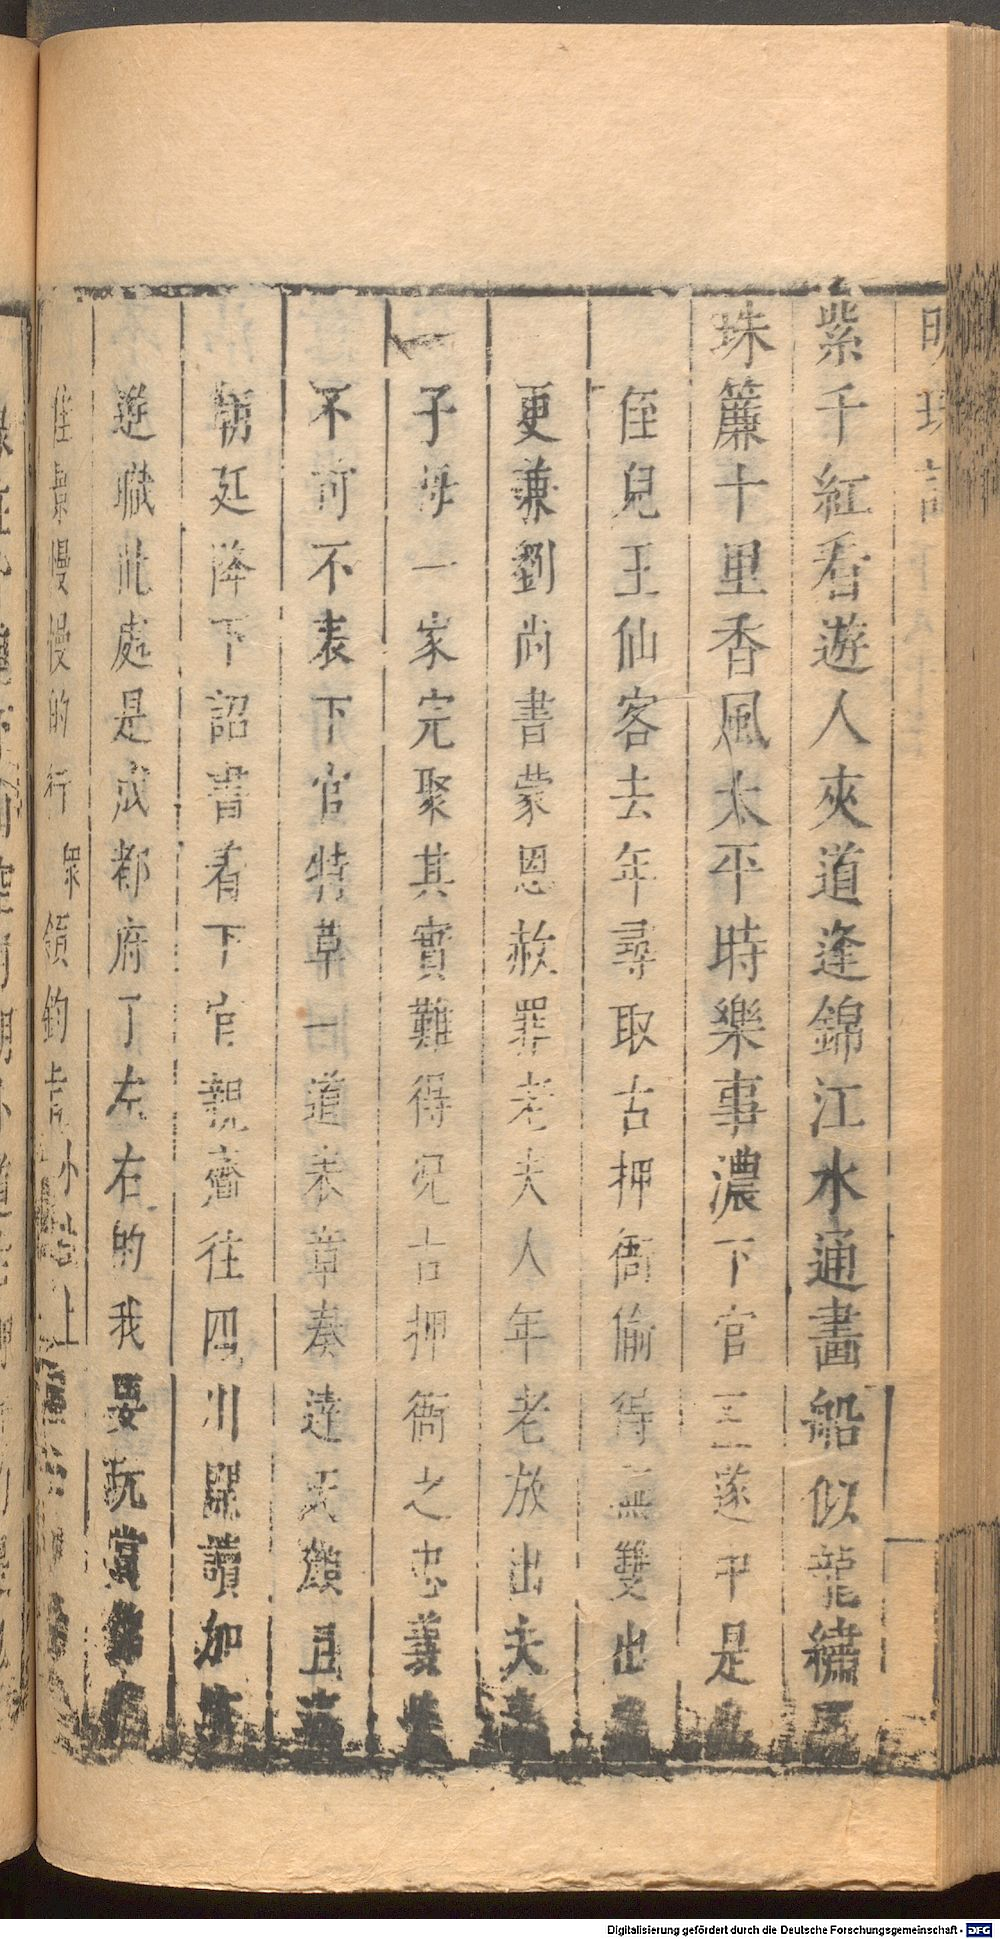 紫千紅看遊人夾道逢錦江水通畫船似龍繡
珠簾十里香風太平時樂事濃下官王遂中是
侄兒王仙客去年尋取古押衙偷得無雙出
更兼劉尚書蒙恩赦罪老夫人年老放出夫
子母一家完聚其實難得況古押衙之忠義
不可不表下官特草一道表章奏達天顔且喜
朝廷降下詔書着下官親齎往四川開讀加
遊職此處是成都府了左右的我要玩賞
慢慢的行 衆領鈞旨 小 上
Digitalisierung gefördert durch die Deutsche Forschungsgemeinschaft - DFG